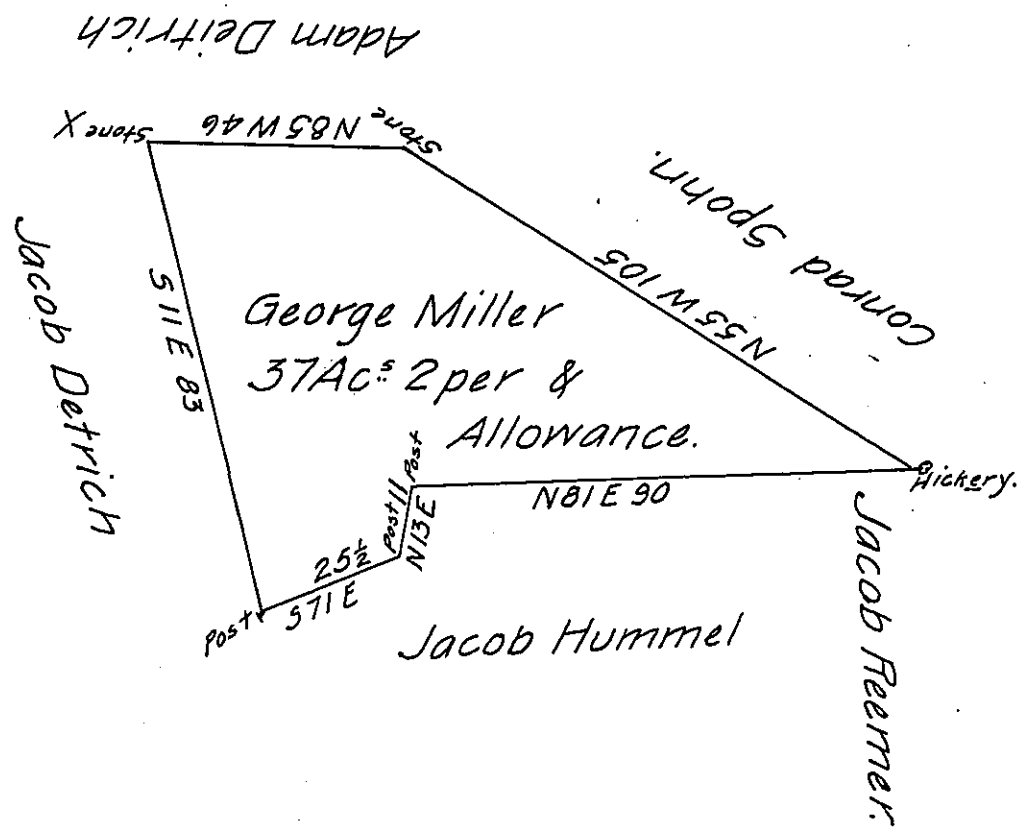 Adam Deitrich
Stone X
N85W46
Stone
Conrad Spohn.
N55W105
Jacob Detrich
S 11 E 83
George Miller
37Acs. 2per &
Allowance.
Post
11
Post
N13E
N81E 90
Hickery.
25½
S71E
Post
Jacob Hummel
Jacob Reemer.